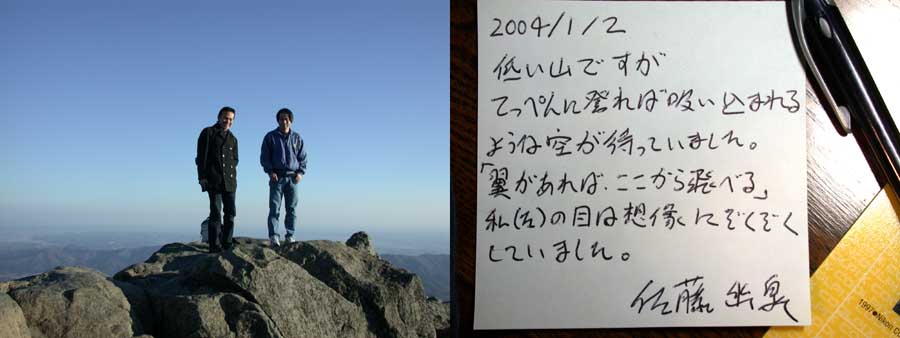 2004/1/2
低い山ですが
てっぺんに登れば吸い込まれる
ような空が待っていました。
「翼があれば、ここから飛べる」
私(左)の目は想像にぞくぞく
していました。
佐藤 幽泉
1997●Nikon Co